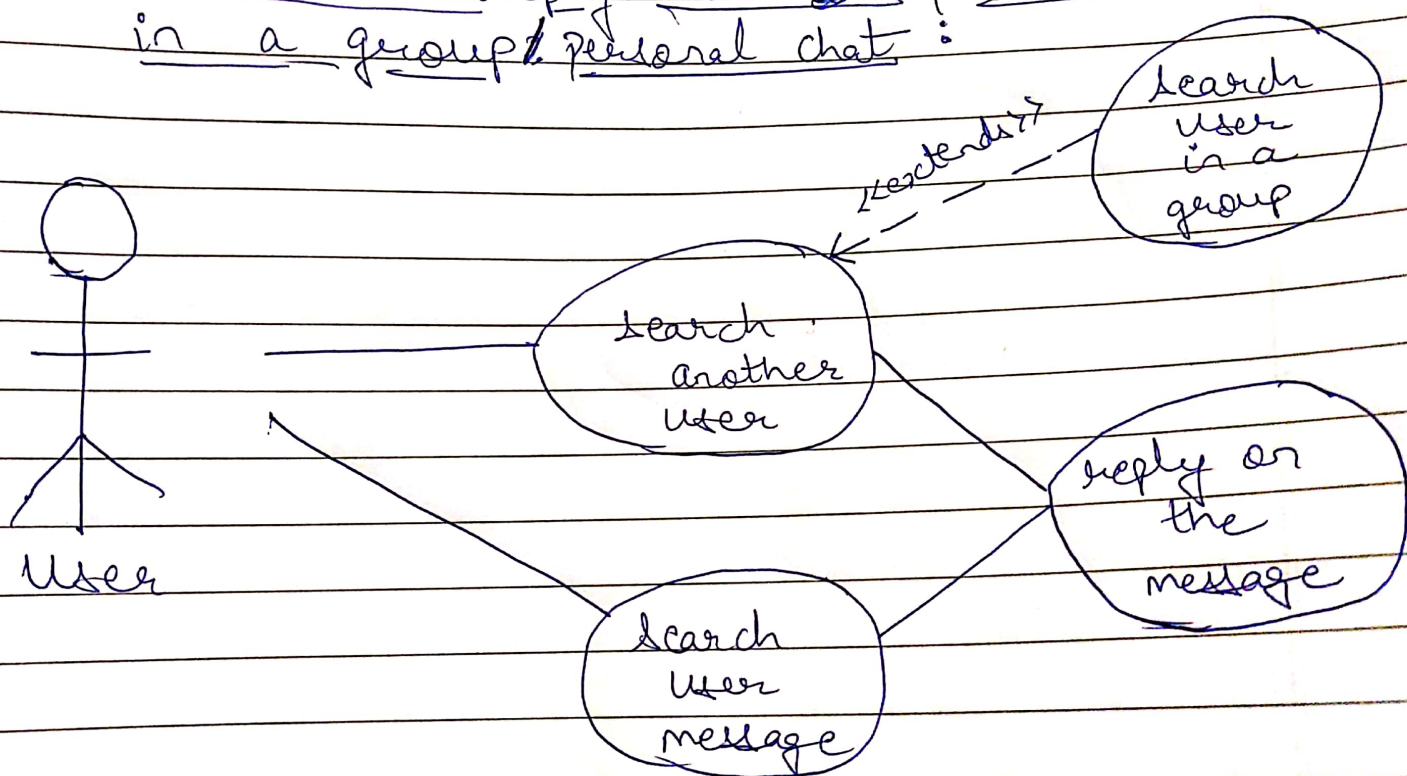 in a group/personal chat :
search
user
in a
group
<<extends>>
search
another
user
reply on
the
message
User
search
user
message